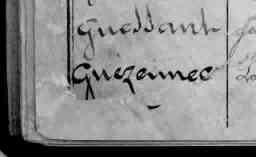 Guessant
Guezennec